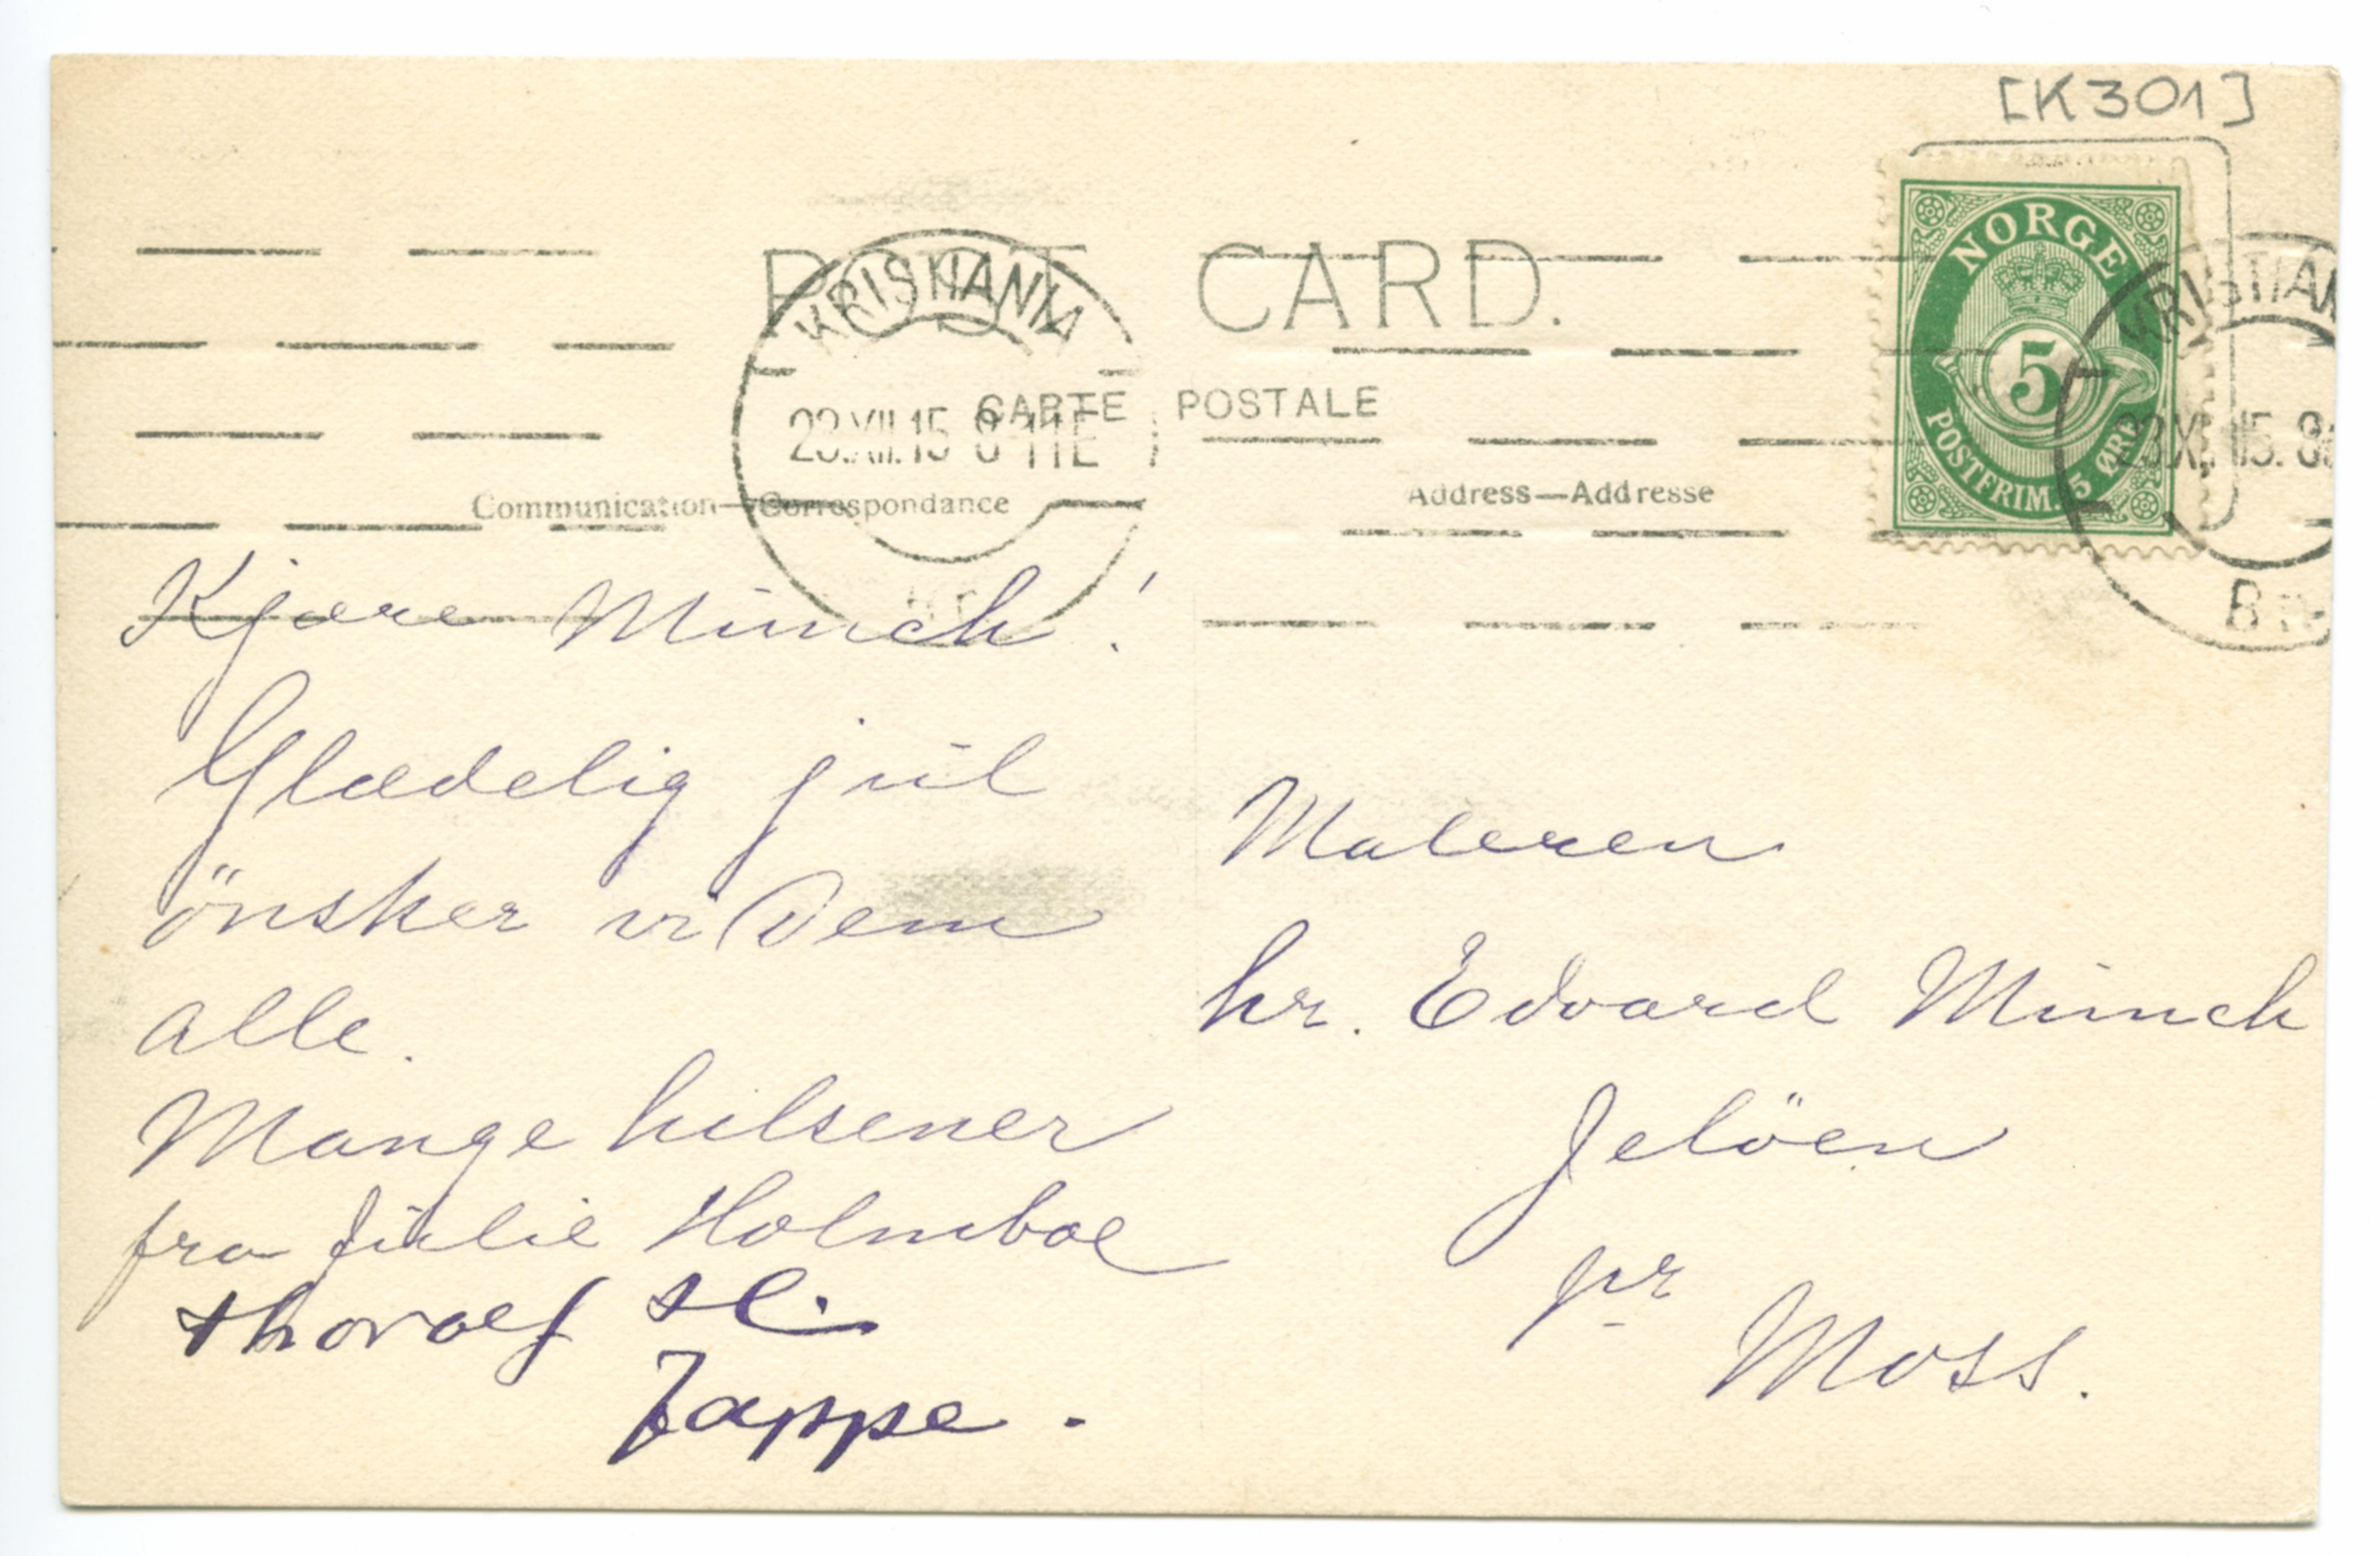 [K301]
POST CARD.
CARTE POSTALE
Communication—Correspondance
Address—Addresse
NORGE
5
POSTFRIM. 5 ØRE
KRISTIANIA
23.XII.15 8-11E
KRISTIAN
23.XII.15. 8
Kjære Munch!
Glædelig jul
önsker vi Dem
alle.
Mange hilsener
fra Julie Holmboe
Thorolf H.
Jappe.
Maleren
hr. Edvard Munch
Jelöen
pr
Moss.